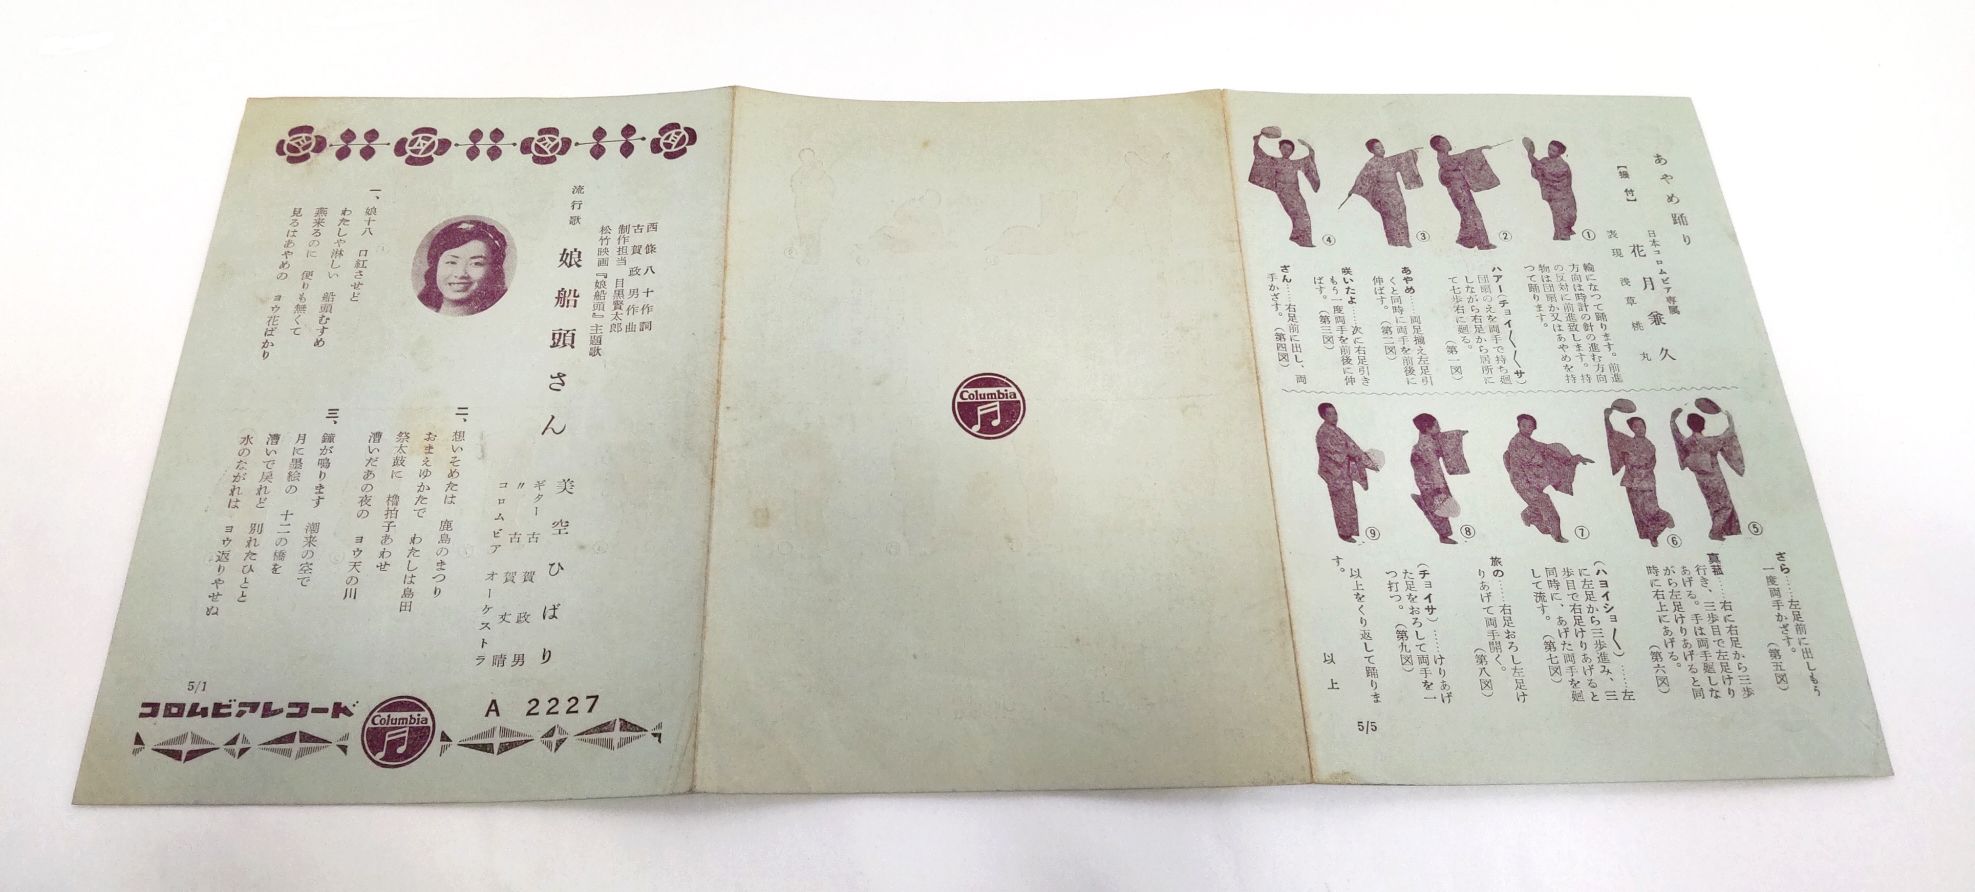 西條八十作詞
古賀政男作曲
制作担当 目黒賢太郎
松竹映画『娘船頭』主題歌
流行歌 娘船頭さん
美空ひばり
ギター 古賀政男
〃 古賀丈晴
コロムビア オーケストラ
一、娘十八 口紅させど
わたしや淋しい 船頭むすめ
燕来るのに 便りも無くて
見るはあやめの ヨウ花ばかり
二、想いそめたは 鹿島のまつり
おまえゆかたで わたしは島田
祭太鼓に 櫓拍子あわせ
漕いだあの夜の ヨウ天の川
三、鐘が鳴ります 潮来の空で
月に墨絵の 十二の橋を
漕いで戻れど 別れたひとと
水のながれは ヨウ返りやせぬ
5/1
コロムビアレコード
Columbia
A 2227
Columbia
あやめ踊り
【振付】
日本コロムビア専属
花月兼久
表現 浅草桃丸
①
②
③
④
輪になつて踊ります。前進
方向は時計の針の進む方向
の反対に前進致します。持
物は団扇か又はあやめを持
つて踊ります。
ハアー(チョイ〱〱サ)
団扇のえを両手で持ち廻
しながら右足から居所に
て七歩右に廻る。
(第一図)
あやめ……両足揃え左足引
くと同時に両手を前後に
伸ばす。(第二図)
咲いたよ……次に右足引き
もう一度両手を前後に伸
ばす。(第三図)
さん……右足前に出し、両
手かざす。(第四図)
⑤
⑥
⑦
⑧
⑨
さら……左足前に出しもう
一度両手かざす。
(第五図)
真菰……右に右足から三歩
行き、三歩目で左足けり
あげる。手は両手廻しな
がら左足けりあげると同
時に右上にあげる。
(第六図)
(ハヨイショ〱)……左
に左足から三歩進み、三
歩目で右足けりあげると
同時に、あげた両手を廻
して流す。(第七図)
旅の……右足おろし左足け
りあげて両手開く。
(第八図)
(チョイサ)……けりあげ
た足をおろして両手を一
つ打つ。(第九図)
以上をくり返して踊りま
す。
以上
5/5